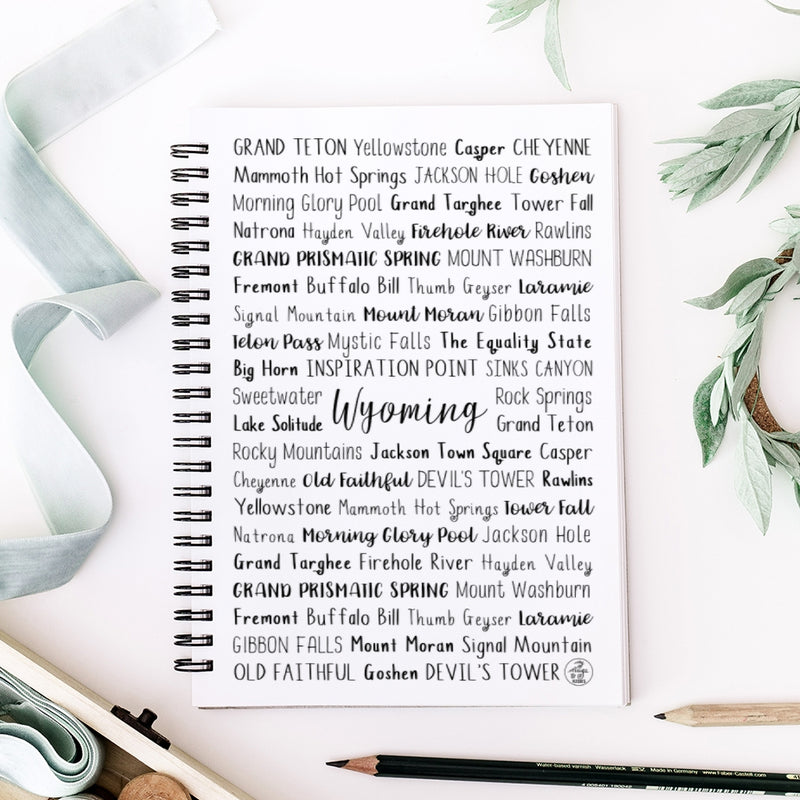 GRAND TETON Yellowstone Casper CHEYENNE
Mammoth Hot Springs JACKSON HOLE Goshen
Morning Glory Pool Grand Targhee Tower Fall
Natrona Hayden Valley Firehole River Rawlins
GRAND PRISMATIC SPRING MOUNT WASHBURN
Fremont Buffalo Bill Thumb Geyser Laramie
Signal Mountain Mount Moran Gibbon Falls
Teton Pass Mystic Falls The Equality State
Big Horn INSPIRATION POINT SINKS CANYON
Sweetwater Rock Springs
Wyoming
Lake Solitude Grand Teton
Rocky Mountains Jackson Town Square Casper
Cheyenne Old Faithful DEVIL'S TOWER Rawlins
Yellowstone Mammoth Hot Springs Tower Fall
Natrona Morning Glory Pool Jackson Hole
Grand Targhee Firehole River Hayden Valley
GRAND PRISMATIC SPRING Mount Washburn
Fremont Buffalo Bill Thumb Geyser Laramie
GIBBON FALLS Mount Moran Signal Mountain
OLD FAITHFUL Goshen DEVIL'S TOWER
Water-based varnish Wasserlack Made in Germany www.Faber-Castell.com